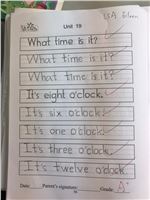 USA Eileen
Unit 19
What time is it?
What time is it?
What time is it?
It's eight o'clock.
It's six o'clock.
It's one o'clock.
It's three o'clock.
It's twelve o'clock.
Date: Parent's signature: Grade: A+